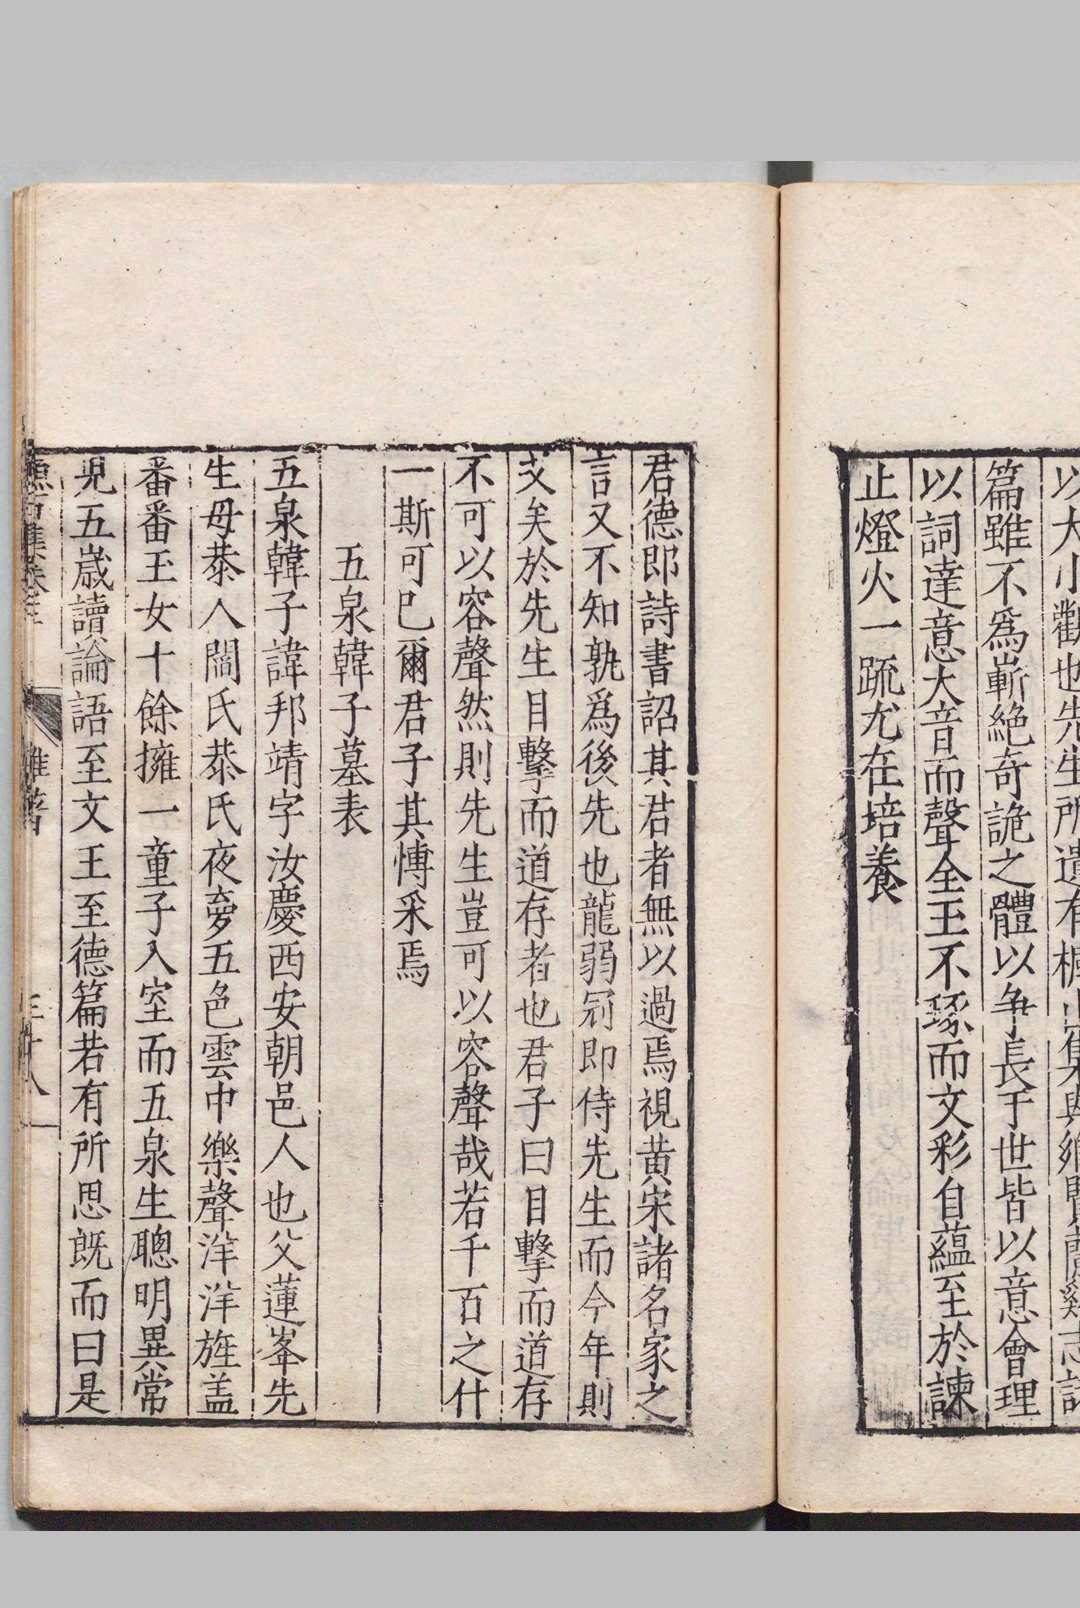 以大小勸也先生所遺有楓山集與鄉賢蘭谿志諸
篇雖不爲嶄絶奇詭之體以争長于世皆以意會理
以詞達意大音而聲全玉不琢而文彩自蘊至於諫
止燈火一疏尤在培養
君德即詩書詔其君者無以過焉視黄宋諸名家之
言又不知孰爲後先也龍弱冠即侍先生而今年則
艾矣於先生目擊而道存者也君子曰目擊而道存
不可以容聲然則先生豈可以容聲哉若千百之什
一斯可巳爾君子其愽采焉
五泉韓子墓表
五泉韓子諱邦靖字汝慶西安朝邑人也父蓮峯先
生母恭人閻氏恭氏夜夣五色雲中樂聲洋洋旌盖
番番玉女十餘擁一童子入室而五泉生聰明異常
児五歳讀論語至文王至德篇若有所思既而曰是
集卷三
雜著
三十八